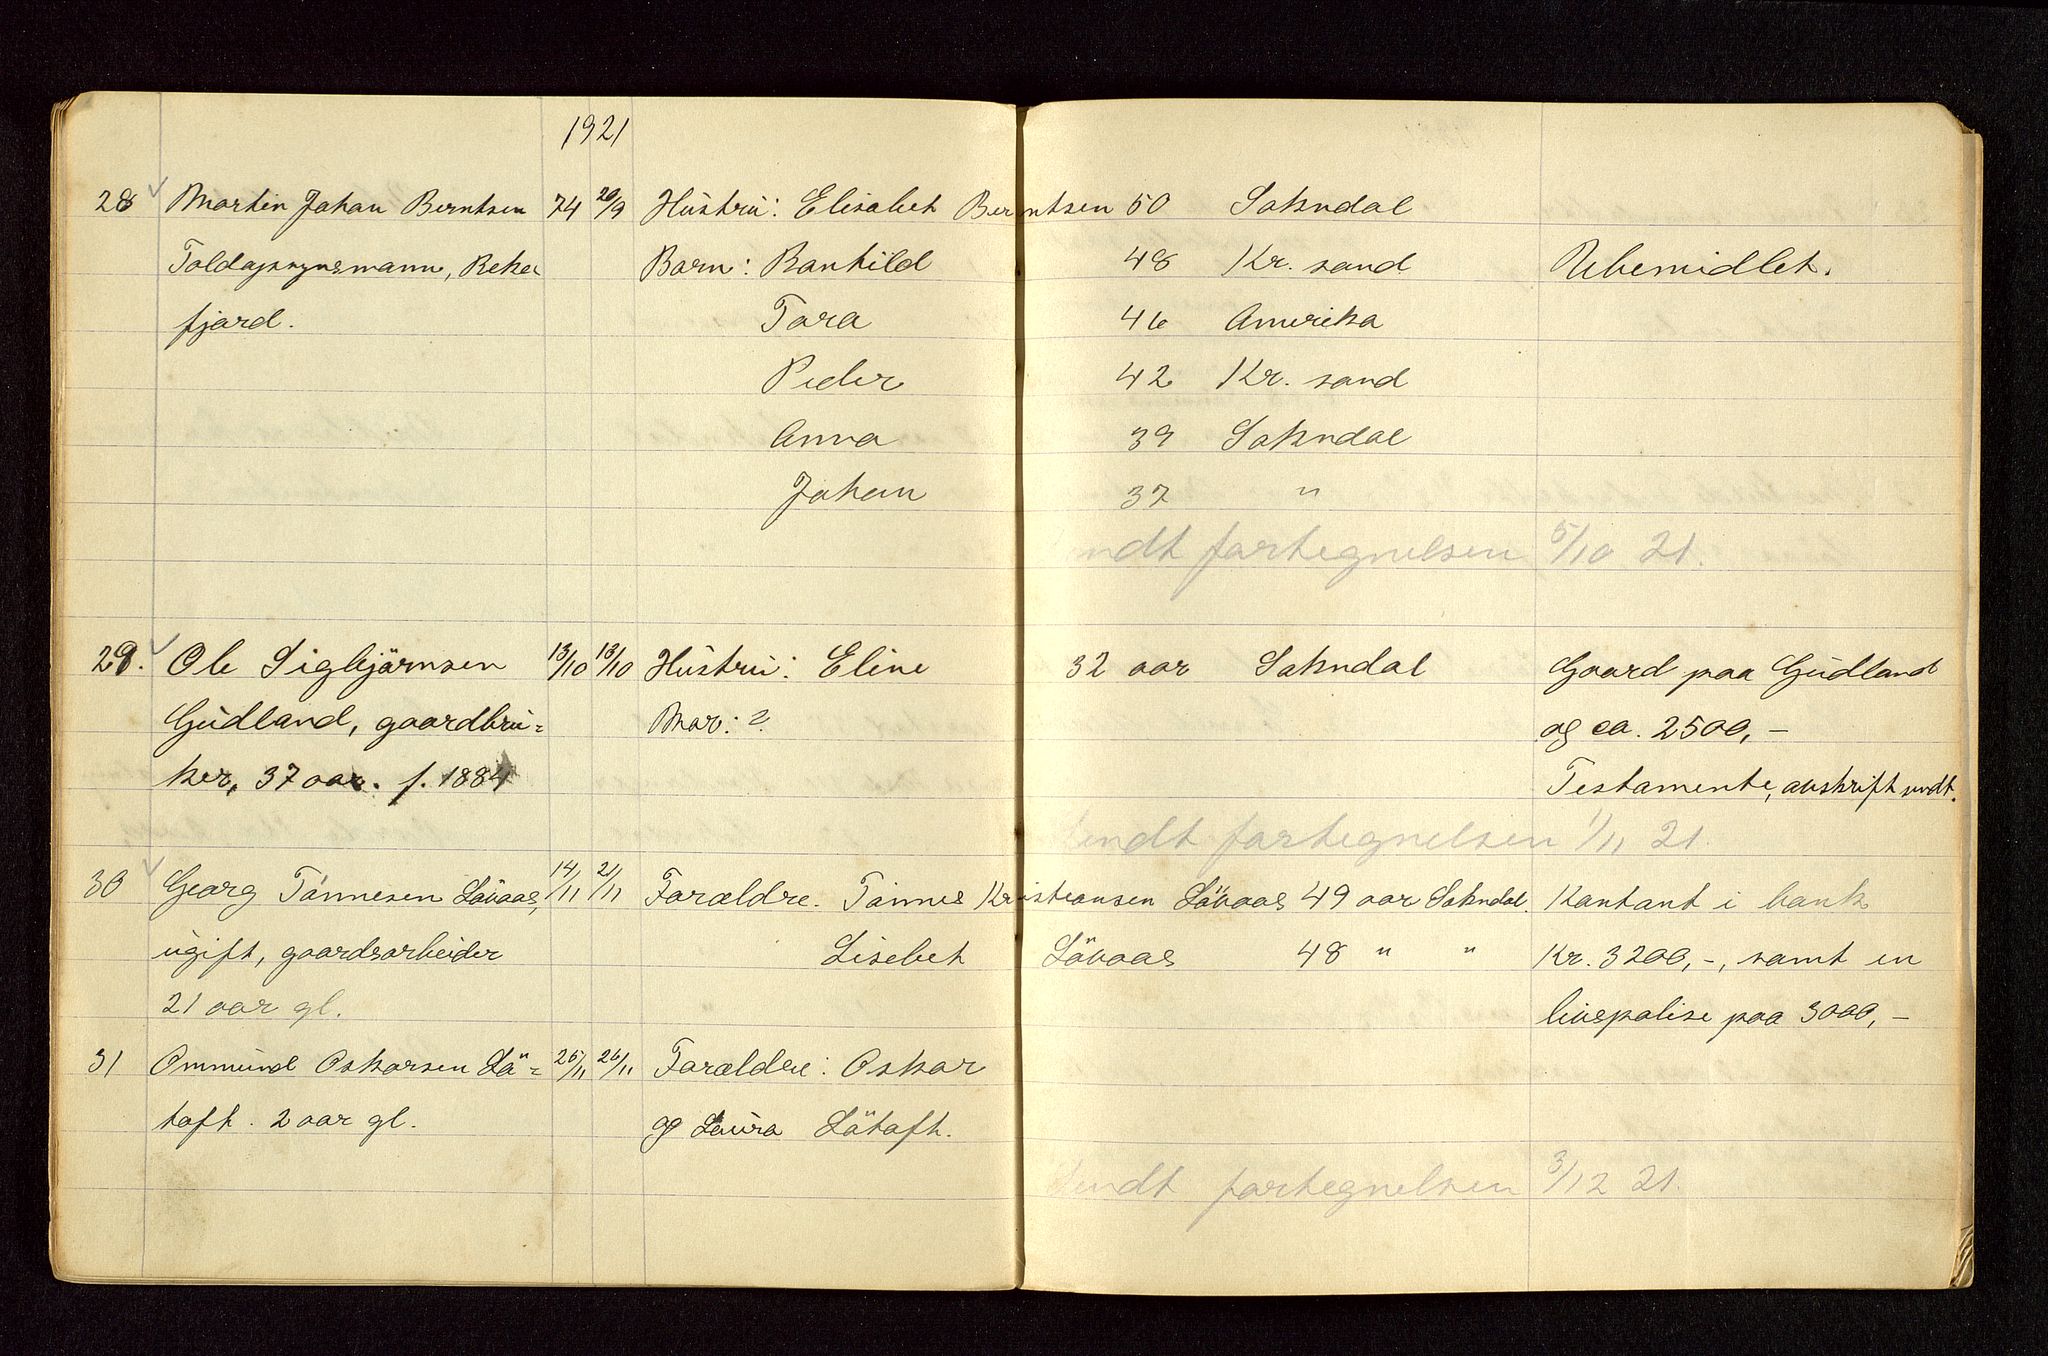 1921
28 Martin Johan Berntsen 74 20/9 Hustru: Elisabet Berntsen 50 Sokndal
Toldopsynsmann, Reke Barn: Ranhild 48 Kr. sand Ubemidlet.
fjord. Tora 46 Amerika
Peder 42 Kr. sand
Anna 39 Sokndal
Johan 37 "
endt fortegnelsen 5/10 21.
29. Ole Sigbjörnsen 13/10 13/10 Hustru: Eline 32 aar Sokndal Gaard paa Gudland
Gudland, gaardbru= Mor: ? og ca. 2500,-
ker, 37 aar. f. 1884 Testamente, avskrift sendt.
Sendt fortegnelsen 1/11 21.
30 Georg Tönnesen Lövaas, 14/11 21/11 Forældre. Tönnes Kristiansen Lövaas 49 aar Sokndal. Kontant i bank
ugift, gaardsarbeider Lisebet Lövaas 48 " " Kr. 3200,-, samt en
21 aar gl. livspolise paa 3000,-
31 Ommund Oskarsen Lö= 25/11 26/11 Forældre: Oskar
toft. 2 aar gl. og Laura Lötoft.
Sendt fortegnelsen 3/12 21.